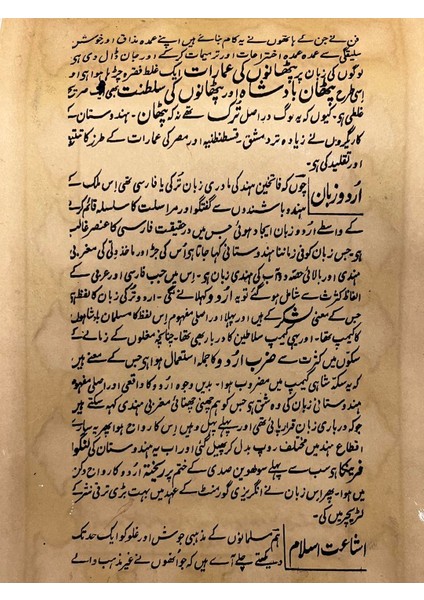 فن نے جن کے ہاتھوں نے یہ کام بنائے ہیں اپنے عمدہ مذاق اور خوش
سلیقگی سے عمدہ عمدہ اختراعات اور ترمیمات کر کے اور جان ڈال دی ہو
لوگوں کی زبان پر پٹھانوں کی عمارات ایک غلط فقرہ چڑھا ہوا ہی اور
اِسی طرح پٹھان بادشاہ اور پٹھانوں کی سلطنت بھی صریح
غلطی ہو۔ کیوں کہ یہ لوگ دراصل تُرک تھے نہ کہ پٹھان۔ ہندوستان کے
کاریگروں نے زیادہ تر دمشق، قسطنطنیہ اور مصر کی عمارات کے طرز کا تتبع
اور تقلید کی ہو۔
اُردو زبان
چوں کہ فاتحینِ ہند کی مادری زبان تُرکی یا فارسی تھی اِس ملک کے
ہندو باشندوں سے گفتگو اور مراسلت کا سلسلہ قائم کرنے
کے واسطے اُردو زبان ایجاد ہوئی جس میں درحقیقت فارسی کا عنصر غالب
ہو جس زبان کو فی زماننا ہندوستانی کہا جاتا ہو اُس کی جڑ اور ماخذ دلی کی مغربی
ہندی اور بالائی حصہ دوآب کی ہندی زبان ہو۔ اِس میں جب فارسی اور عربی کے
الفاظ کثرت سے شامل ہو گئے تو یہ اُردو کہلانے لگی۔ اردو تُرکی زبان کا لفظ ہو
جس کے معنی لشکر کے ہیں اور پہلا اور اصلی مفہوم اِس لفظ کا مسلمان بادشاہوں
کا کیمپ تھا۔ اور یہی کیمپ سلاطین کا دربار بھی تھا۔ چنانچہ مغلوں کے زمانے کے
سکّوں میں کثرت سے ضرب اُردو کا جملہ استعمال ہوا ہی جس کے معنے ہیں
کہ یہ سکّہ شاہی کیمپ میں مضروب ہوا۔ بدیں وجوہ اُردو کا واقعی اور اصلی مفہوم
ہندوستانی زبان کی وہ شق ہو جس کو ہم چھنی چھنائی مغربی ہندی کہہ سکتے ہیں
جو کہ درباری زبان قرار پائی تھی اور پہلے پہل وہیں اِس کا رواج ہوا پھر یہ سارے
اقطاعِ ہند میں مختلف روپ بدل کر پھیل گئی اور اب یہ ہندوستان کی لنگوا
فرینکا ہو سب سے پہلے سولھویں صدی کے ختم پر ریختۂ اُردو کا رواج دکن
میں ہوا۔ پھر اِس زبان نے انگریزی گورنمنٹ کے عہد میں بہت بڑی ترقی نثر کے
لٹریچر میں کی۔
اشاعت اسلام
ہم مسلمانوں کے مذہبی جوش اور غلو کو ایک حد تک
دیکھتے چلے آئے ہیں کہ جو انھوں نے غیر مذہب والے